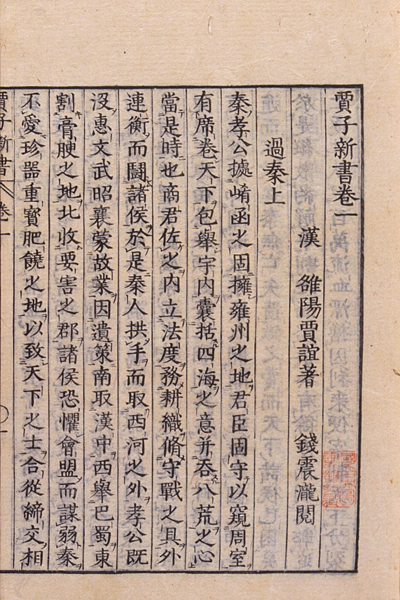 賈子新書卷一
漢 雒陽賈誼著 錢震瀧閱
過秦上
秦孝公據崤函之固擁雍州之地君臣固守以窺周室
有席卷天下包舉宇内囊括四海之意并吞八荒之心
當是時也商君佐之内立法度務耕織脩守戰之具外
連衡而鬪諸侯於是秦人拱手而取西河之外孝公既
沒惠文武昭襄蒙故業因遺策南取漢中西舉巴蜀東
割膏腴之地北收要害之郡諸侯恐懼會盟而謀弱秦
不愛珍器重寳肥饒之地以致天下之士合從締交相
賈子新書 卷一 一